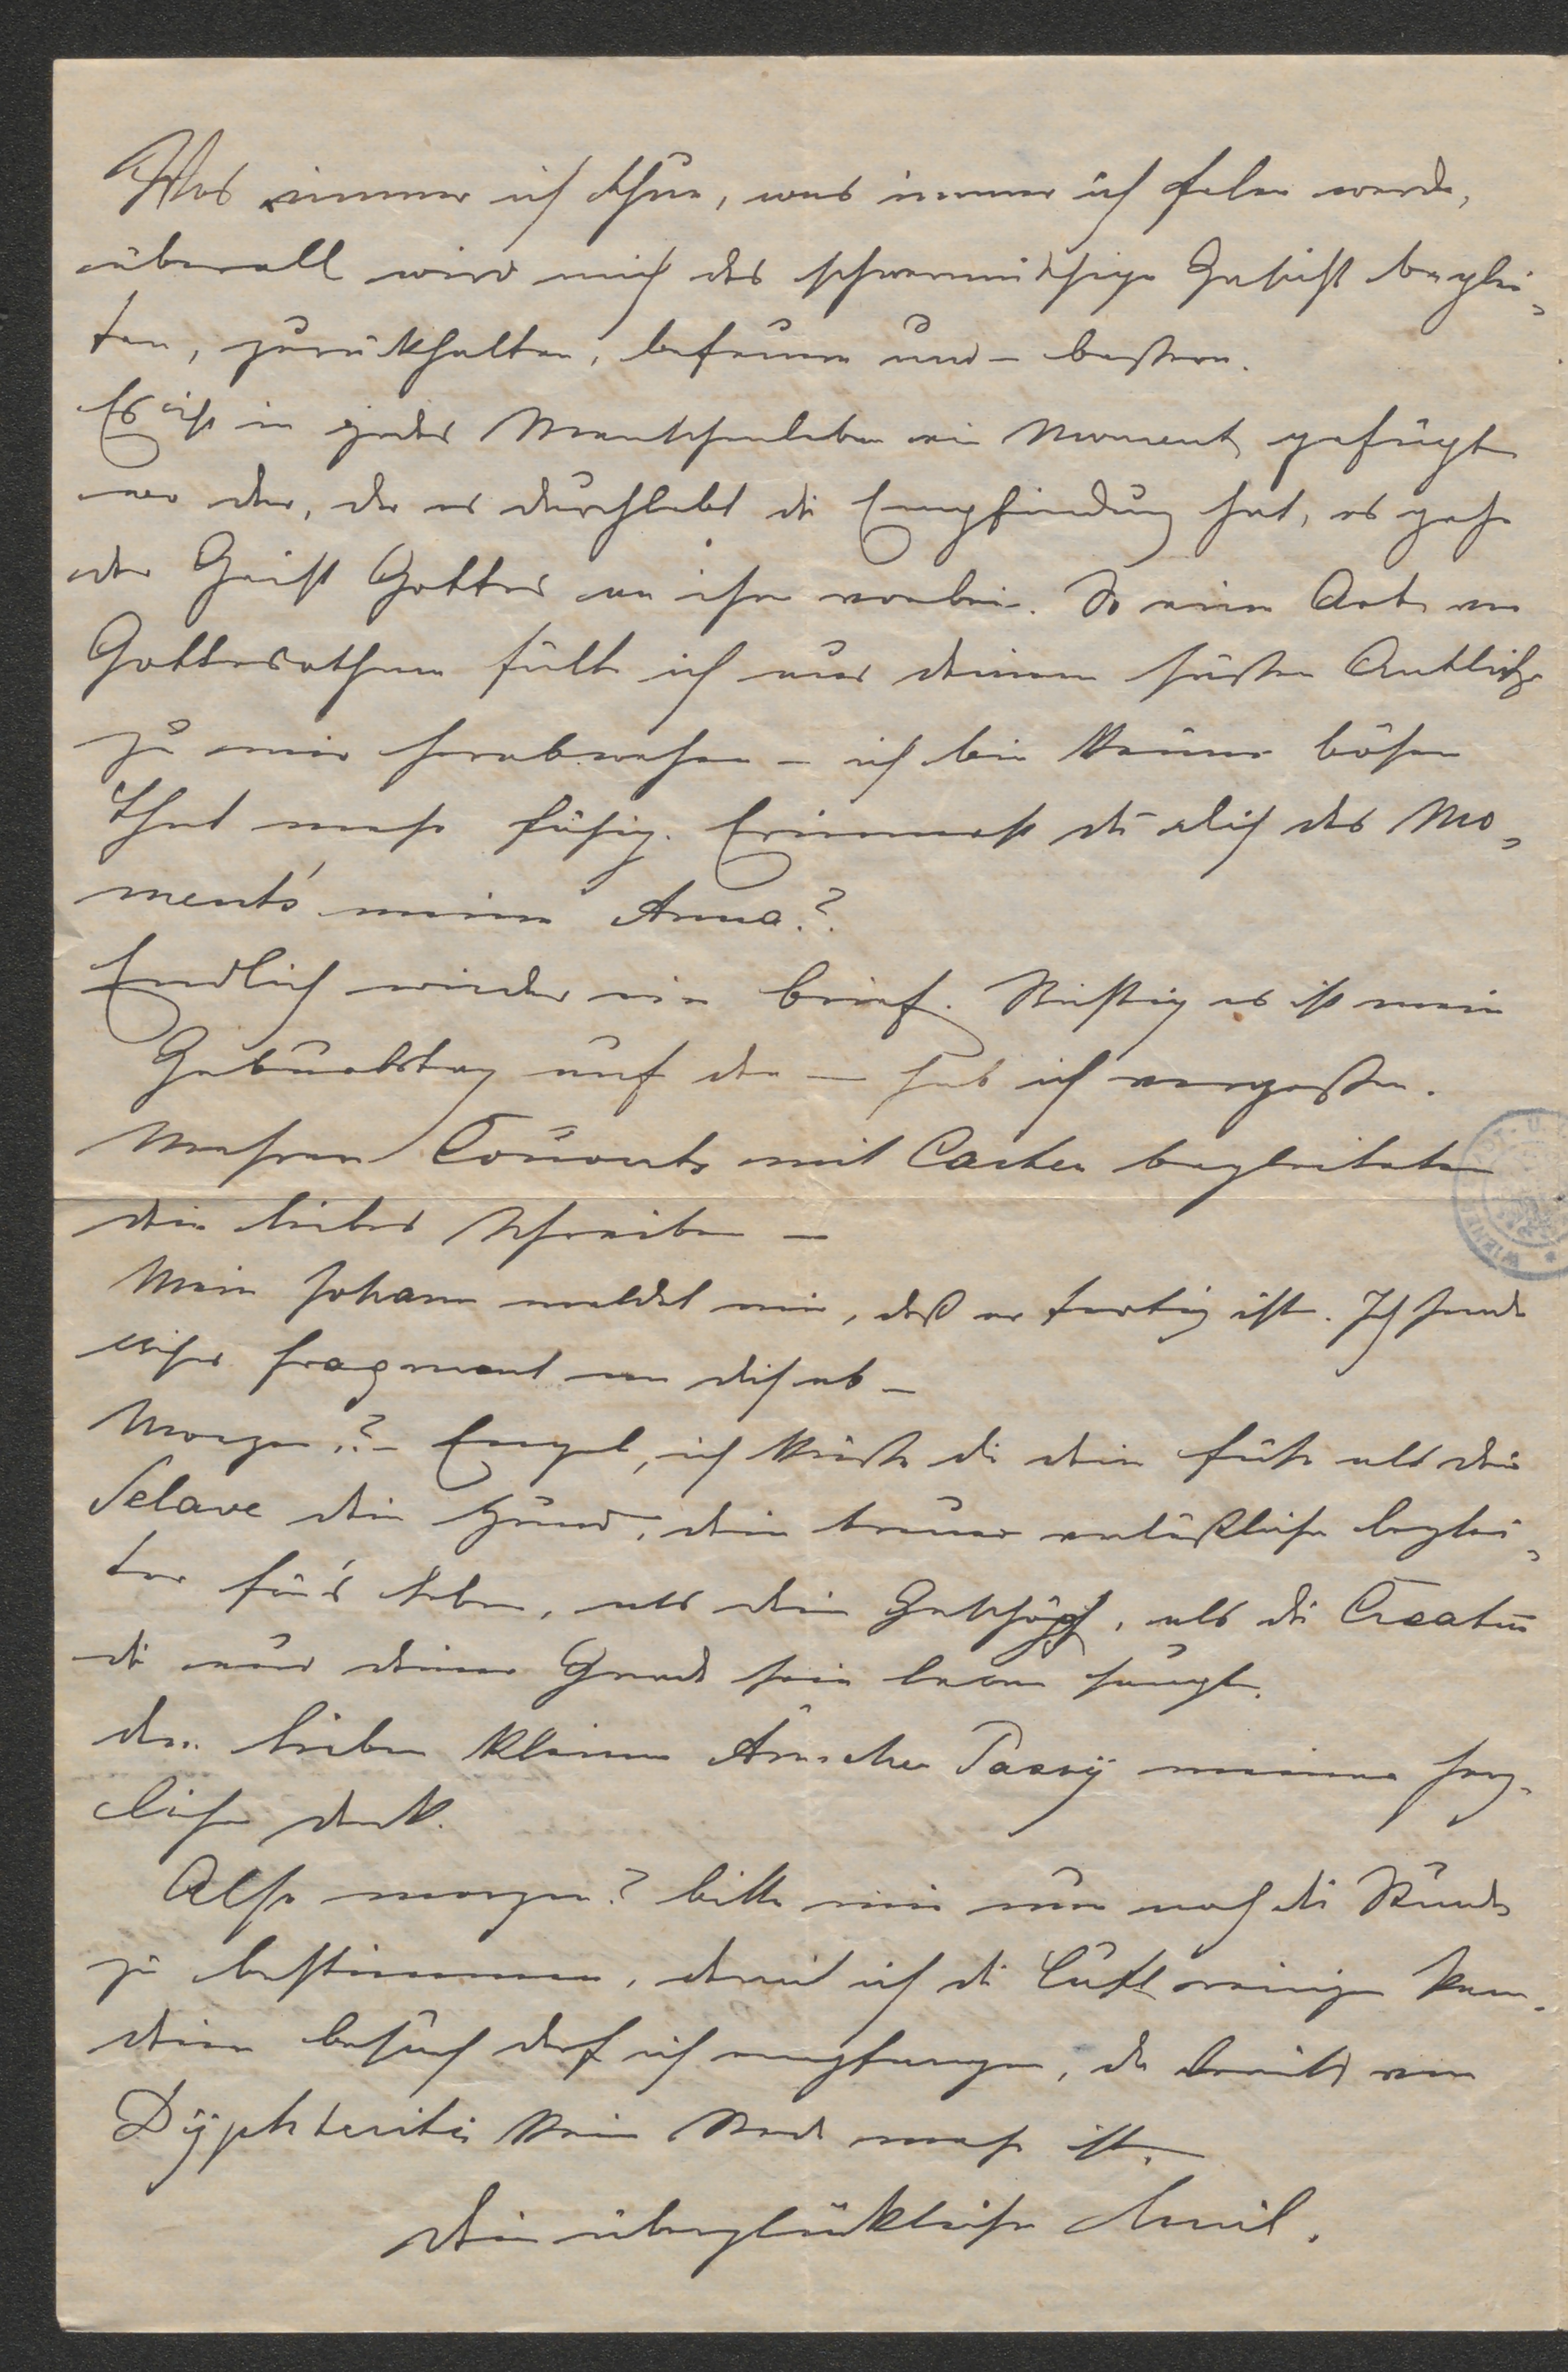 Was immer ich thue, was immer ich selen werde,
überall wird mich das schwermüthige Gesicht beglei-
ten, zurükhalten, befeuern und – bessern.
Es ist in jedes Menschenleben ein Moment gefügt
wo der, der es durchlebt die Empfindung hat, es gehe
der Geist Gottes an ihm vorbei. So eine Art von
Gottesathem fülte ich aus deinem süssen Antlitze
zu mir herabwehen – ich bin keiner bösen
That mehr fähig. Erinnerst du dich des Mo-
ment's meine Anna?
Endlich wieder ein Brief. Richtig es ist mein
Geburtstag auf den – hab ich vergessen.
Mehrere Couverts mit Carten begleiteten
dein liebes Schreiben –
Mein Johann meldet mir, daß er fertig ist. Ich sende
dieses Fragment an dich ab –
Morgen? – Engel, ich küsse dir die Füße als dein
Sclave dein Hund, dein treuer verläßlicher Beglei-
ter für's Leben, als dein Geschöpf, als die Creatur
die aus deiner Gnade sein Leben saugt.
der lieben kleinen Ännchen meinen herz-
lichen Dank.
Also morgen? bitte mir nur noch die Stunde
zu bestimmen, damit ich die Luft reinigen kann.
deinen Besuch darf ich empfangen, da bereits von
Dÿphteritis kein Rede mehr ist.
dein überglüklicher Emil.